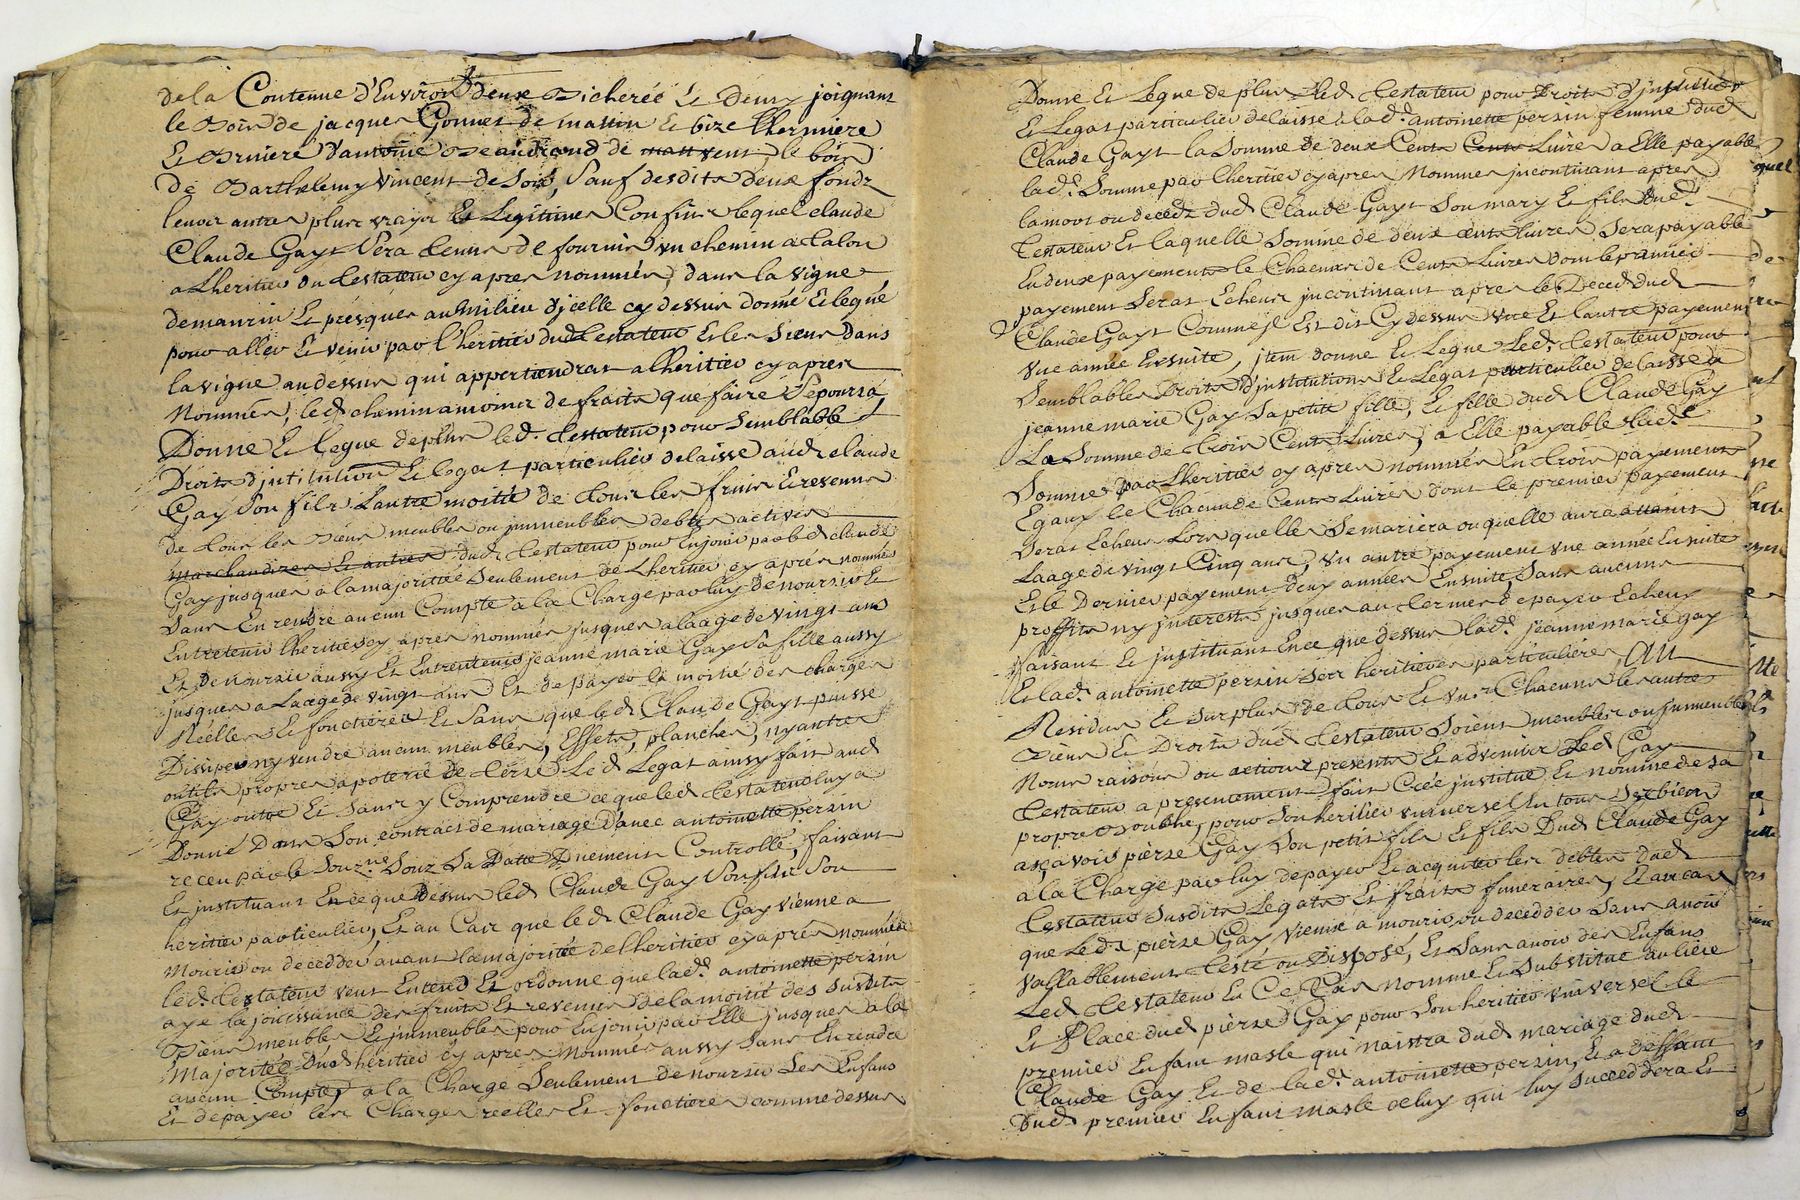 de la Contenue d'Environ deux Bicherée Et Demy joignant
le Bois de jacques Gonnet de matin Et bize lhermiere
Et Bruiere d'antoine Beaudrand de vent, le bois
de Barthelemy Vincent de Soir, Sauf desdits deux fondz
leurs autres plus vrays Et Legitimes Confins lequel claude
Claude Gayt Sera tenu de fournir vn chemin a talon
a Lheritier du testateur cy apres nommée dans la vigne
de maurin Et presques au milieu d'jcelle cy dessus donné Et legué
pour aller Et venir par l'heritier dud testateur Et les Siens Dans
la vigne au dessus qui appertiendrat a lheritier cy apres
Nommée, led chemin a moins de fraits que faire Se pourra,
Donne Et legue de plus led. testateur pour Semblable
Droits d'jntitution Et legat particulier delaisse aud claude
Gay Son fils Lautre moitié de tous les fruits Et revenus
de tous les Biens meubles ou jmmeubles debtes actives
marchandizes Et autres dud testateur pour En jouir par led claude
Gay jusques a la majoritée Seulement de Lheritier cy aprés nommée
Sans En rendre aucun Compte a la Charge par luy de nourrir Et
Entretenir lheritier cy aprés nommée jusques a laage de vingt ans
Et De nourrir aussy Et Entretenir jeanne marie Gay Sa fille aussy
jusques a Laage de vingt ans Et de payer la moitié des charges
Réelles Et fonctieres Et Sans que led Claude Gayt puisse
Dissiper ny vendre aucun meubles, Effets, planches, ny autres
outils propres a poterie de terre Led Legat ainsy fait aud
Gay outre Et Sans y Comprendre ce que led testateur luy a
Donné Dans Son contract de mariage d'avec antoinette persin
receu par le Souzne. Souz Sa Datte Duement Controllé, faisant
Et jnstituant En ce que Dessus led Claude Gay Son fils Son
heritier particulier, Et au Cas que led Claude Gay vienne a
Mourir ou decedder avant la majoritée de lheritier cy aprés nommée
led. testateur veut Entend Et ordonne que lad. antoinette persin
aye la jouissance des fruits Et revenus de la moitié des Susdits
Biens meubles Et jmmeubles pour En jouir par Elle jusques a la
Majoritée Dud heritier cy apres Nommée aussy Sans En rendre
aucun Compte, a la Charge Seulement de nourrir Ses Enfans
Et de payer les Charges réelles Et fonctieres comme dessus
Donne Et Legue de plus led testateur pour Droits d'jnstitution
Et Legat particulier delaisse a lad. antoinette persin femme dud
Claude Gayt la Somme de deux Cents Cents Livres a Elle payable
lad. Somme par lheritier cy apres Nommée jncontinant apres
la mort ou decedz dud Claude Gayt Son mary Et fils dud.
testateur Et laquelle Somme de deux cents Livres Sera payable
En deux payements le Chacun de Cents Livres dont le premier
payement Serat Echeu jncontinant apres le Deced dud
Claude Gayt Comme jl Est dit Cy dessus Et lautre payement
vne année Ensuite, jtem donne Et Legue Led. testateur pour
Semblables Droits d'jnstitution Et Legat particulier delaisse a
jeanne marie Gay Sa petite fille, Et fille dud Claude Gay
La Somme de trois Cents Livres, a Elle payable lad.
Somme par Lheritier cy apres nommée En trois payements
Egaux le Chacun de Cents Livres dont le premier payement
Serat Echeu Lors quelle Se mariera ou quelle aura attaint
Laage de vingt Cinq ans, vn autre payement vne année Ensuite
Et le Dernier payement deux années Ensuite, Sans aucuns
proffits ny jnterests jusques au terme de payer Echeus
faisant Et jnstituant En ce que dessus lad. jeanne marie gay
Et lad. antoinette persin Ses heritieres particulieres, Au
Residu Et Surplus de tous Et vns Chacuns les autres
Biens Et Droits dud testateur Soient meubles ou jmmeubles
Noms raisons ou actions presents Et advenir Led Gay
testateur a presentement fait Créé jnstitué Et nommé de Sa
propre bouche, pour Son heritier vniversel En tous Ses biens
asçavoir pierre Gay Son petit fils Et fils Dud Claude Gay
a la Charge par luy de payer Et acquiter les debtes dud
testateur Susdits Legats Et fraits funeraires, Et au cas
que Led pierre Gay vienne a mourir ou decedder Sans avoir
vallablement testé ou Disposé, Et Sans avoir des Enfans
Led testateur En Ce Cas nomme Et Substitue au lieu
Et Place dud pierre Gay pour Son heritier vniversel le
premier Enfant masle qui naistra dud mariage dud
Claude Gay Et de lad. antoinette persin, Et a deffaut
Dud premier Enfant masle celuy qui luy Succeddera Et